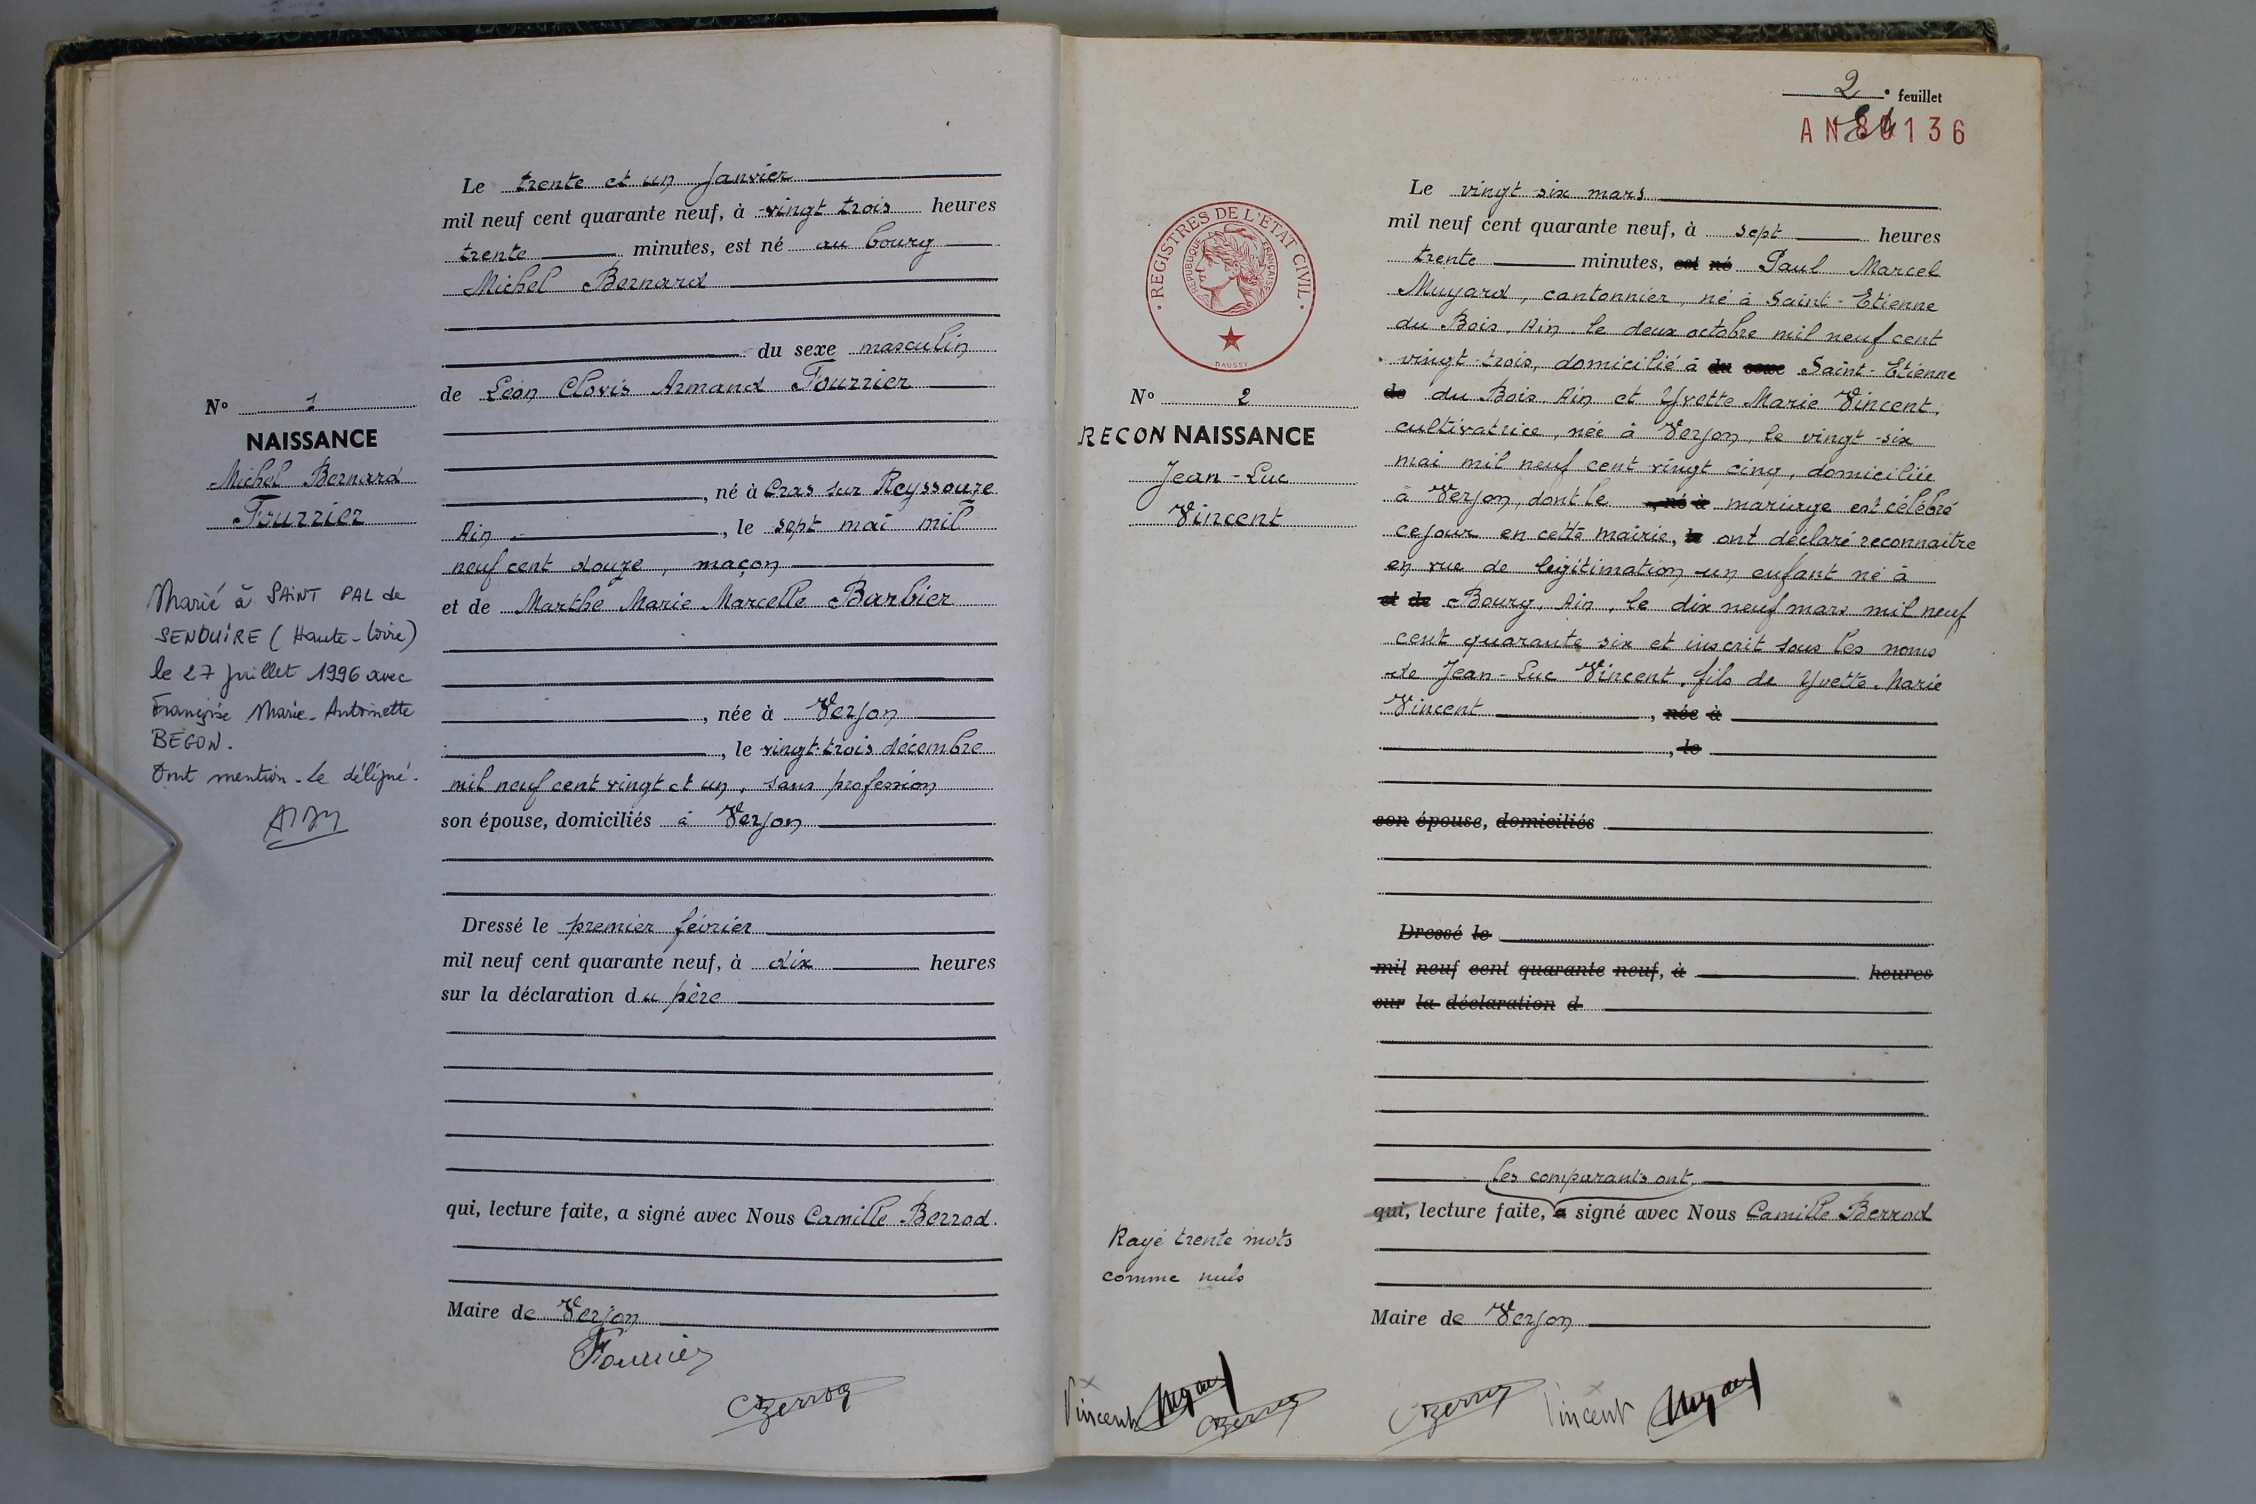 Le trente et un Janvier
mil neuf cent quarante neuf, à vingt trois heures
trente minutes, est né au bourg
Michel Bernard
du sexe masculin
de Léon Clovis Armand Fourrier
N° 1
NAISSANCE
Michel Bernard
Fourrier
, né à Cras sur Reyssouze
Ain, le sept mai mil
neuf cent douze, maçon
et de Marthe Marie Marcelle Barbier
, née à Verjon
, le vingt-trois décembre
mil neuf cent vingt et un, sans profession
son épouse, domiciliés à Verjon
Marié à SAINT PAL de
SENOUIRE (Haute-Loire)
le 27 Juillet 1996 avec
Françoise Marie-Antoinette
BEGON.
Dont mention - Le délégué.
Dressé le premier février
mil neuf cent quarante neuf, à dix heures
sur la déclaration du père
qui, lecture faite, a signé avec Nous Camille Berrod.
Maire de Verjon
Fourrier
CBerrod
2e feuillet
AN80136
REGISTRES DE L'ETAT CIVIL
REPUBLIQUE FRANÇAISE
DAUSSY
N° 2
RECONNAISSANCE
Jean-Luc
Vincent
Le vingt six mars
mil neuf cent quarante neuf, à sept heures
trente minutes, est né Paul Marcel
Muyard, cantonnier, né à Saint-Etienne
du Bois, Ain, le deux octobre mil neuf cent
vingt-trois, domicilié à du sexe Saint-Etienne
de du Bois, Ain et Yvette Marie Vincent,
cultivatrice, née à Verjon, le vingt-six
mai mil neuf cent vingt cinq, domiciliée
à Verjon, dont le , né à mariage est célébré
ce jour en cette mairie, le ont déclaré reconnaitre
en vue de légitimation un enfant né à
et de Bourg, Ain, le dix neuf mars mil neuf
cent quarante six et inscrit sous les noms
de Jean-Luc Vincent, fils de Yvette Marie
Vincent, née à
, le
son épouse, domiciliés
Dressé le
mil neuf cent quarante neuf, à heures
sur la déclaration d
les comparants ont
qui, lecture faite, a signé avec Nous Camille Berrod
Rayé trente mots
comme nuls
Maire de Verjon
Vincent Muyard
CBerrod
CBerrod Vincent Muyard